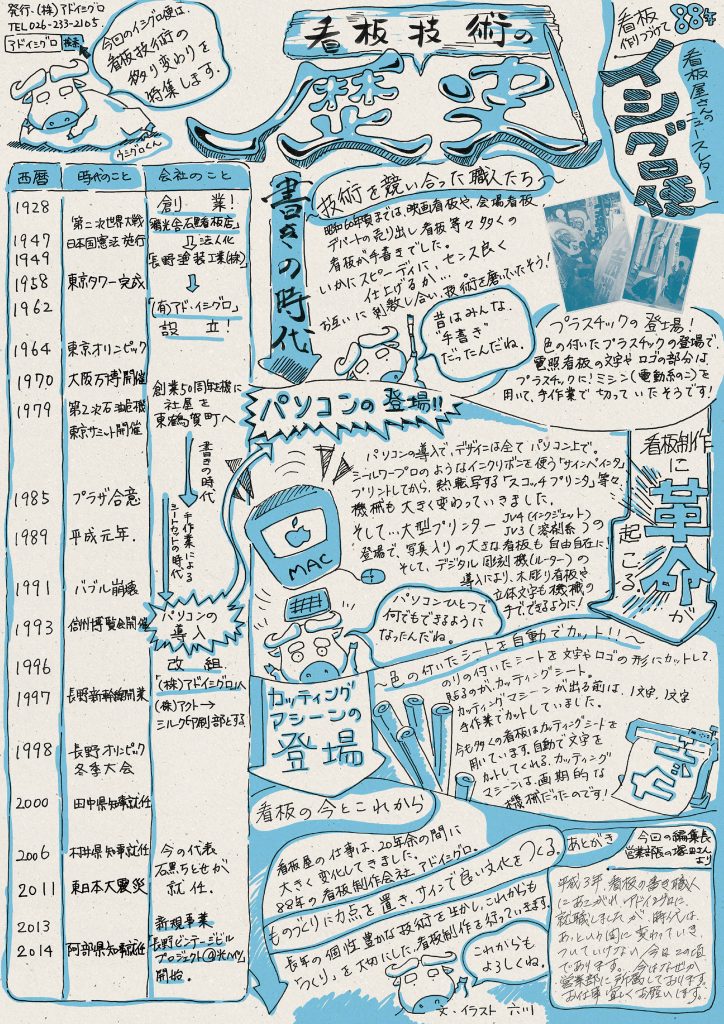 発行・(株)アドイシグロ
TEL 026-233-2105
アドイシグロ 検索
今回のイシグロ便は、
看板技術の
移り変わりを
特集します。
ウシグロくん
看板技術の
歴史
看板
作りつづけて
88年
看板屋さんの
ニュースレター
イシグロ便
西暦 時代のこと 会社のこと
1928 創業!
第二次世界大戦 「陽光会石黒看板店」
1947 日本国憲法施行 法人化
1949 「長野塗装工業(株)」
1958 東京タワー完成
1962 「(有)アド・イシグロ」
設立!
1964 東京オリンピック
1970 大阪万博開催
創業50周年を機に
社屋を
東鶴賀町へ
1979 第2次石油危機
東京サミット開催
書きの時代
手作業による
シートカットの時代
1985 プラザ合意
1989 平成元年.
1991 バブル崩壊
1993 信州博覧会開催
パソコンの
導入
1996 改組
「(株)アドイシグロ」へ
1997 長野新幹線開業
(株)アクト→
シルク印刷部とする
1998 長野オリンピック
冬季大会
2000 田中県知事就任
2006 村井県知事就任 今の代表
石黒ちとせが
就任.
2011 東日本大震災
2013 新規事業
2014 阿部県知事就任 「長野ビンテージビル
プロジェクト
開始.
書きの時代
〜技術を競い合った職人たち〜
昭和60年頃までは、映画看板や、会場看板、
デパートの売り出し看板等々多くの
看板が手書きでした。
いかにスピーディに、センス良く
仕上げるか…
お互いに刺激し合い、技術を磨いていたそう!
昔はみんな、
"手書き"
だったんだね。
プラスチックの登場!
色の付いたプラスチックの登場で
電照看板の文字やロゴの部分は、
プラスチックに!ミシン(電動糸のこ)を
用いて、手作業で切っていたそうです!
パソコンの登場!!
看板制作
に
革命が
起こる
パソコンの導入で、デザインは全てパソコン上で。
シールワープロのようなインクリボンを使う「サインペインタ」
プリントしてから、熱転写する「スコッチプリンタ」等々、
機械も大きく変わっていきました。
そして…大型プリンター JV4(インクジェット)
JV3(溶剤系)の
登場で、写真入りの大きな看板も自由自在に!
そして、デジタル彫刻機(ルーター)の
導入により、木彫り看板や
立体文字も機械の
手でできるように!
MAC
パソコンひとつで
何でもできるように
なったんだね。
カッティング
マシーンの
登場
〜色の付いたシートを自動でカット!!〜
のりの付いたシートを文字やロゴの形にカットして
貼るのが、カッティングシート。
カッティングマシーンが出る前は、1文字、1文字
手作業でカットしていました。
今も多くの看板はカッティングシートを
用いています。自動で文字を
カットしてくれる、カッティング
マシーンは、画期的な
機械だったのです!
看板の今とこれから
看板屋の仕事は、20年余の間に
大きく変化してきました。
88年の看板制作会社、アドイシグロ。
ものづくりに力点を置き、サインで良い文化をつくる。
長年の個性豊かな技術を生かし、これからも
「つくり」を大切にした、看板制作を行っていきます。
これからも
よろしくね。
文・イラスト 六川
あとがき
今回の編集長
営業部長の塚田さん
より
平成3年、看板の書き職人
にあこがれ、アドイシグロに、
就職しましたが、時代は、
あっという間に変わっていき
ついていけない今はこの頃
であります。今はなぜか
営業部に所属しております。
お仕事宜しくお願いします。